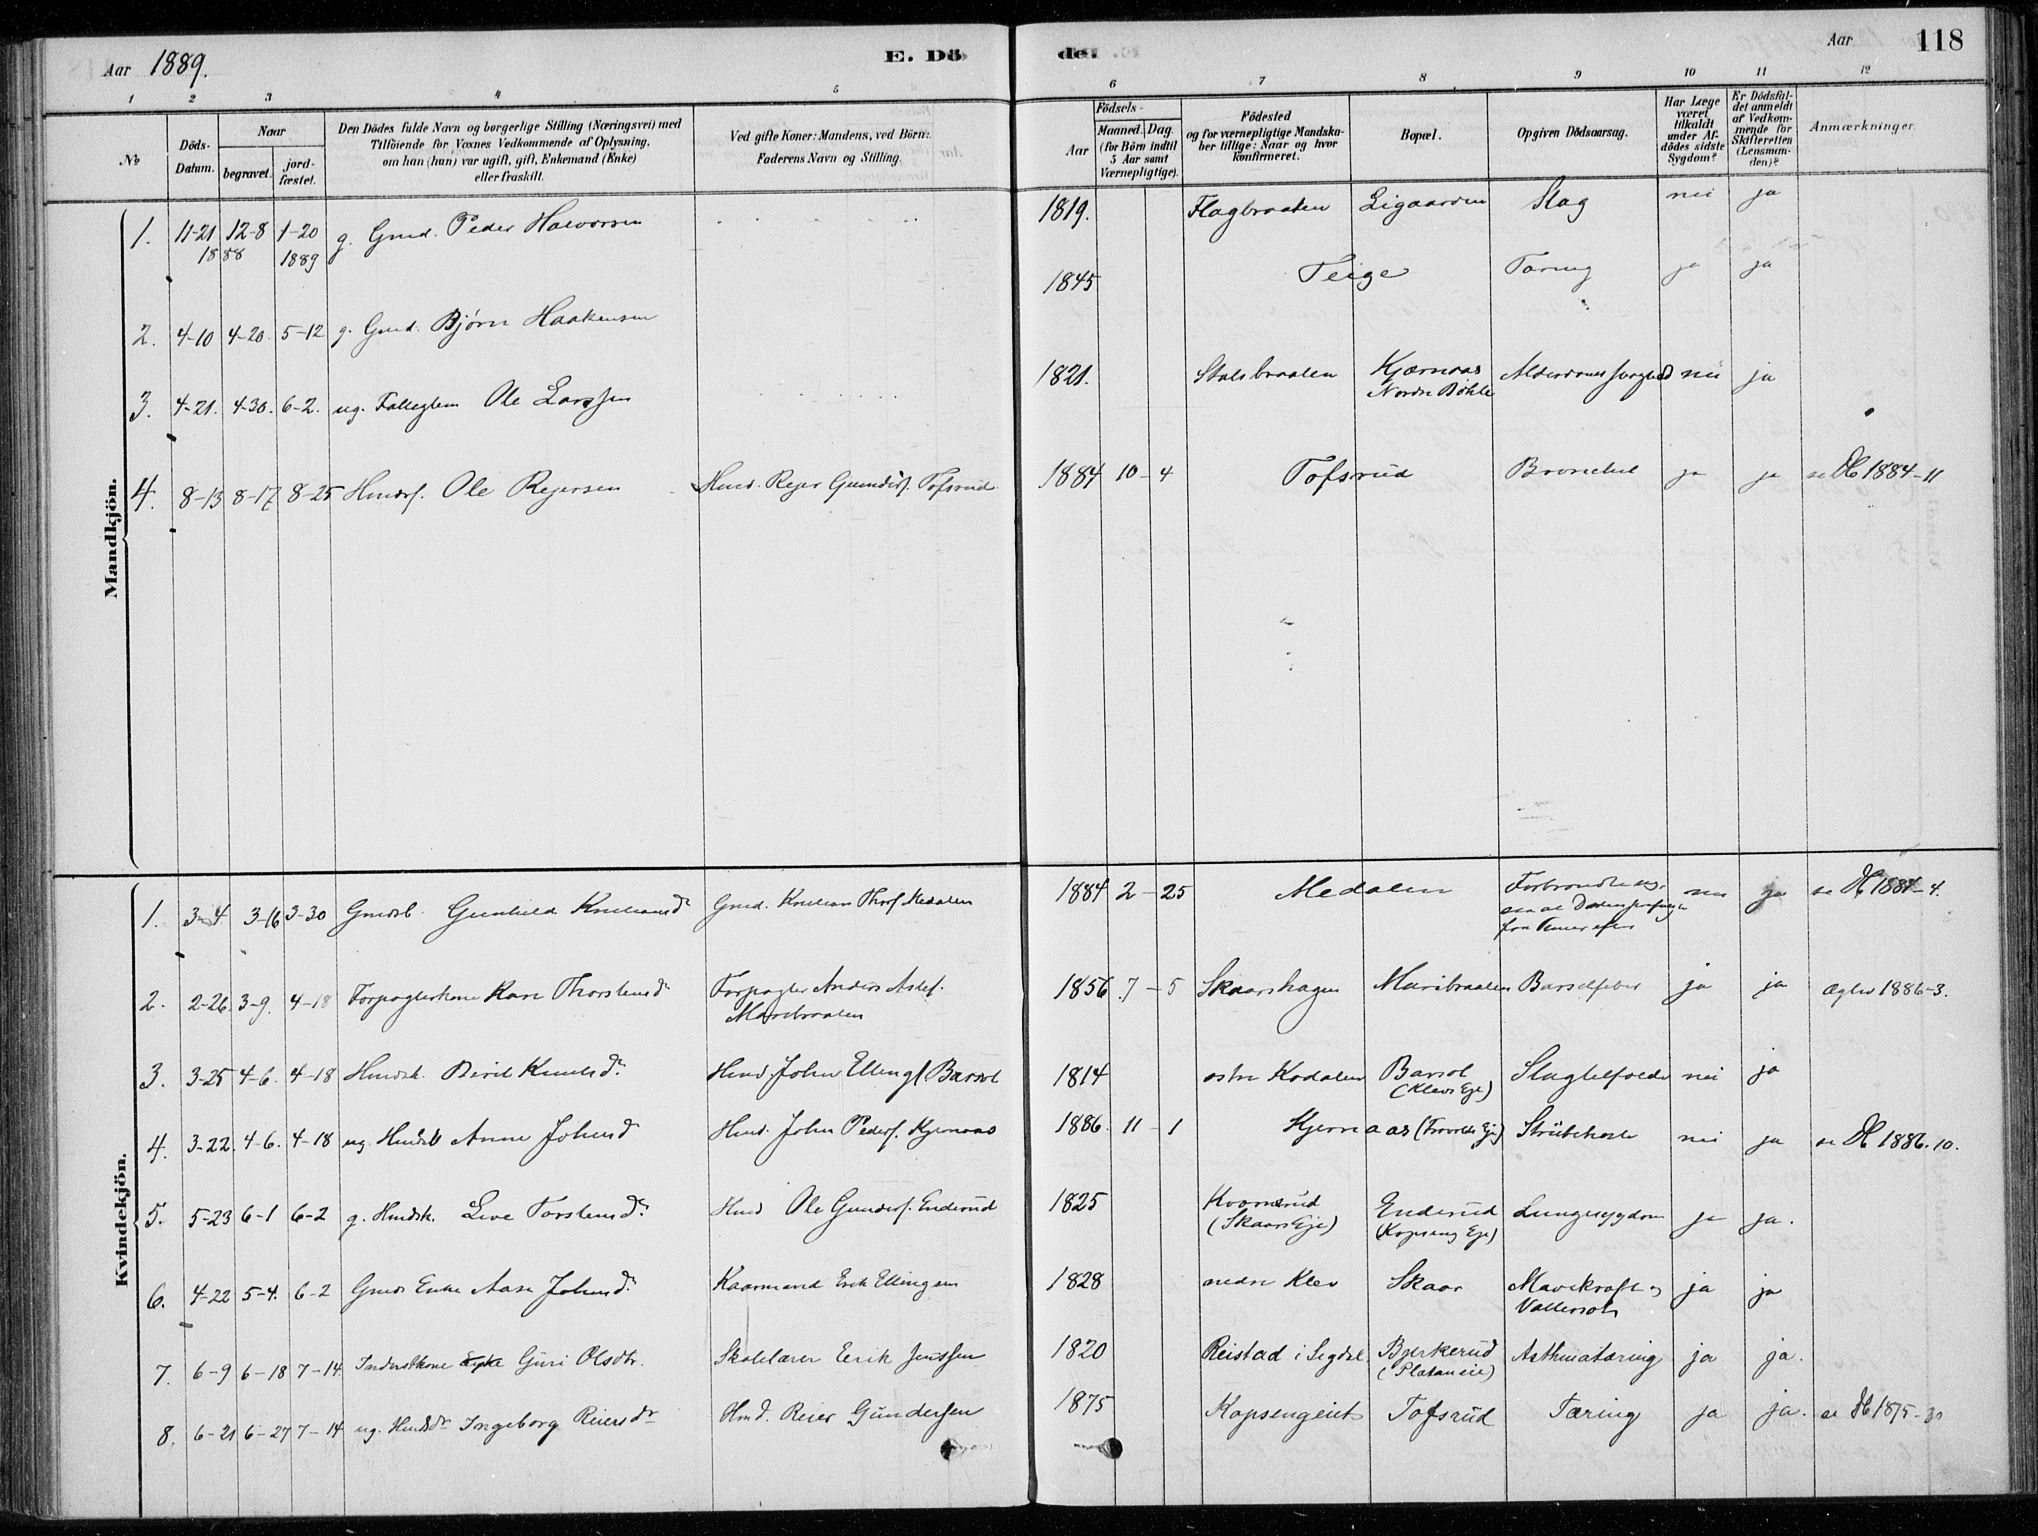 Aar 1889.
E. Dö
de.
Aar
118
1 2 3 4 5 6 7 8 9 10 11 12
No
Döds-Datum.
Naar
begravet.
jord-fæstet.
Den Dödes fulde Navn og borgerlige Stilling (Næringsvei) med
Tilföiende for Voxnes Vedkommende af Oplysning,
om han (hun) var ugift, gift, Enkemand (Enke)
eller fraskilt.
Ved gifte Koner: Mandens, ved Börn:
Faderens Navn og Stilling.
Aar
Födsels-
Maaned. Dag.
(for Börn indtil
5 Aar samt
Værnepligtige).
Födested
og for værnepligtige Mandska-
ber tillige: Naar og hvor
konfirmeret.
Bopæl.
Opgiven Dödsaarsag.
Har Læge
været
tilkaldt
under Af-
dödes sidste
Sygdom?
Er Dödsfal-
det anmeldt
af Vedkom-
mende for
Skifteretten
(Lensman-
den)?
Anmærkninger.
Mandkjön.
1. 11-21 12-8 1-20 g. Gmd. Peder Halvorsen 1819. Flagbraaten Ligaarden Slag nei ja
1888 1889
2. 4-10 4-20 5-12 g. Gmd. Bjørn Haakensen 1845 Teige Tæring ja ja
3. 4-21. 4-30. 6-2. ug. Fattiglem Ole Larssen 1821. Stalsbraaten Kjærnaas Alderdomssvaghed nei ja
Nordre Bøhle
4. 8-13 8-17 8-25 Hmdsf. Ole Reiersen Hmd. Reier Gundersf. Tofsrud 1884 10-4 Tofsrud Bronchit ja ja se Db 1884-11
Kvindekjön.
1. 3-4 3-16 3-30 Gmdsb. Gunhild Kristiansdr Gmd. Kristian Thorsf Medalen 1884 2-25 Medalen nei ja se Db 1884-4.
2. 2-26. 3-9. 4-18 Forpagterkone Kari Thorstensdr Forpagter Anders Aslef. 1856 7-5 Skaarshagen Maribraaten Barselfeber ja ja Egtev 1886-3.
Maribraaten
3. 3-25 4-6. 4-18 Hmdsk. Birit Knudsdr Hmd. John Ellingsf Barsol 1814 østre Kodalen Barsol Slagtilfælde nei ja
(Klevs Eje)
4. 3-22. 4-6. 4-18 ug. Hmdsb Anne Johnsd Hmd. John Pedersf. Kjernaas 1886. 11-1 Kjernaas Strübehoste nei ja se Db 1886. 10.
5. 5-23 6-1 6-2 g. Hmdsk. Live Torstensdr. Hmd Ole Gundersf. Enderud 1825 Kværnrud Enderud Lungesygdom ja ja.
(Skaars Eje) (Kopseng Eje)
6. 4-22 5-4. 6-2 Gmds Enke Aase Johnsdr. Kaarmand Erik Ellingsen 1828 nedre Klev Skaar Mavekræft og ja ja
Vattersot
7. 6-9 6-18 7-14. Inderstkone Guri Olsdtr. Skolelærer Eerik Jenssen 1820 Reistad i Sigdal Bjerkerud Asthmatæring ja ja.
(Platan eie)
8. 6-21 6-27 7-14 ug. Hmdsdr Ingeborg Reiersdr Hmd. Reier Gundersen 1875 Kopsengeiet Tofsrud Tæring ja ja. se Db 1875-30